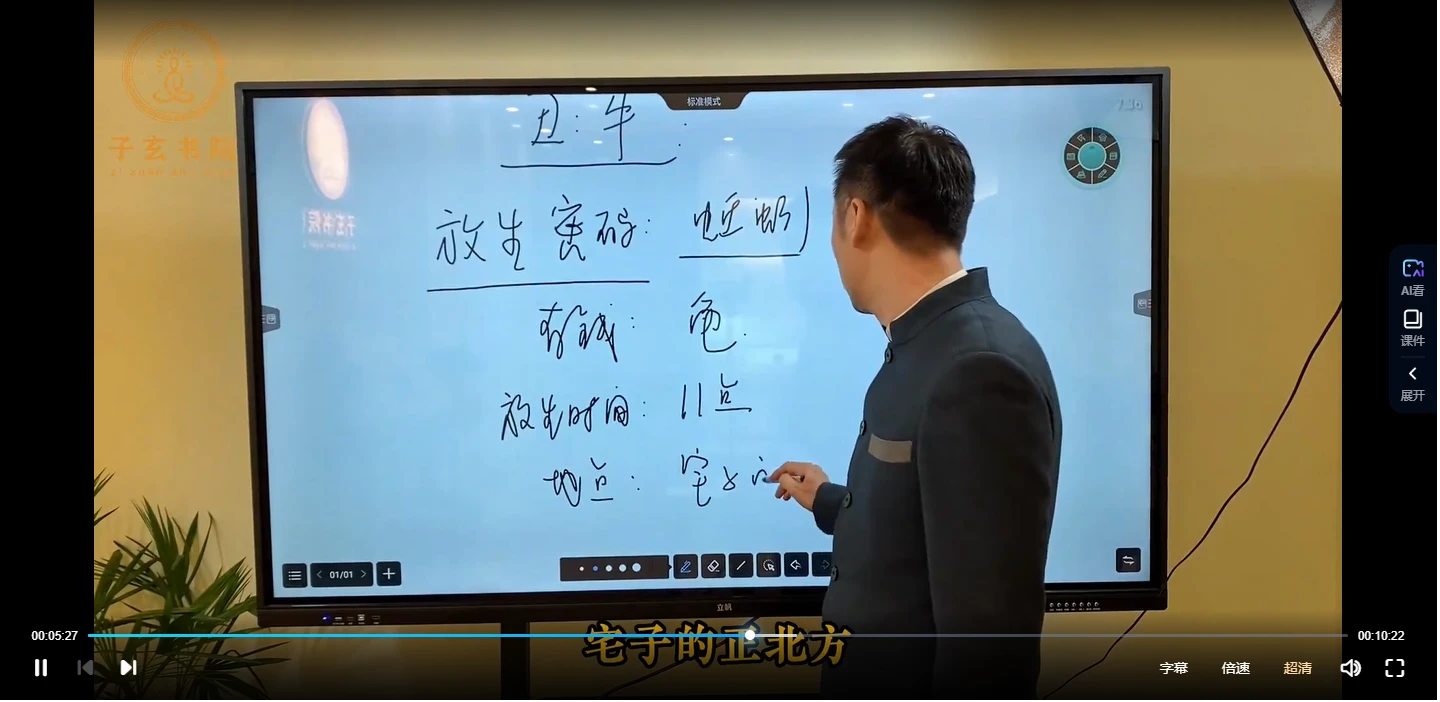 子玄书院
标准模式
7:36
丑:牛:
放生密码:
有钱: 龟.
放生时间: 11点
地点: 宅
01/01
立帆
宅子的正北方
AI看
课件
展开
00:05:27
00:10:22
字幕
倍速
超清